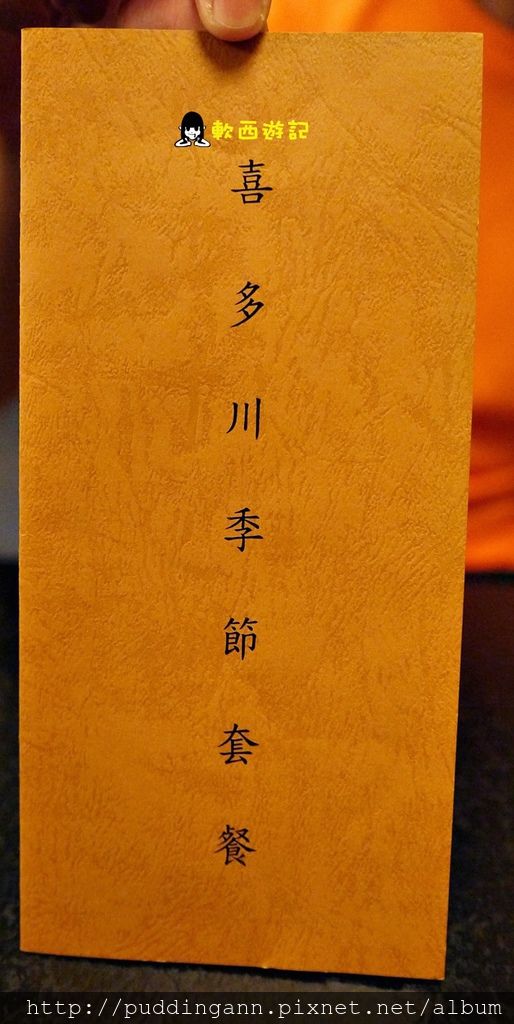 軟西遊記
喜多川季節套餐
http://puddingann.pixnet.net/album